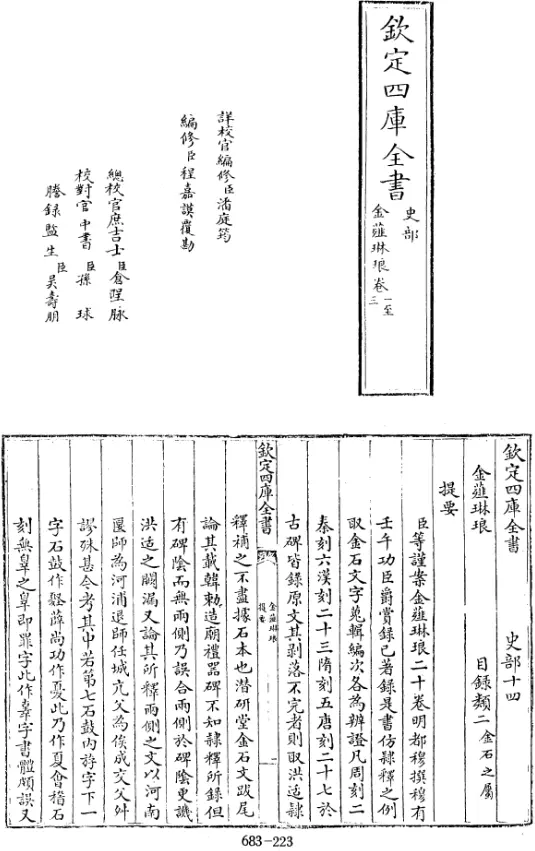 欽定四庫全書
史部
金薤琳琅卷一至三
詳校官編修臣潘庭筠
編修臣程嘉謨覆勘
總校官庶吉士臣倉聖脉
校對官中書臣孫球
謄錄監生臣吳壽朋
欽定四庫全書
史部十四
金薤琳琅
目錄類二金石之屬
提要
臣等謹案金薤琳琅二十卷明都穆撰穆有
壬午功臣爵賞録已著録是書仿隸釋之例
取金石文字蒐輯編次各為辨證凡周刻二
秦刻六漢刻二十三隋刻五唐刻二十七於
古碑皆録原文其剥落不完者則取洪适隸
欽定四庫全書
金薤琳琅
提要
一
釋補之不盡據石本也潜研堂金石文跋尾
論其載韓勅造廟禮器碑不知隸釋所録但
有碑陰而無兩側乃誤合兩側於碑陰更譏
洪适之闕漏又論其所釋兩側之文以河南
匽師為河浦退師任城亢父為俟成交父舛
謬殊甚今考其中若第七石鼓内
字下一
字石鼓作
薛尚功作憂此乃作夏會稽石
刻無辠之辠即罪字此作辜字書體頗誤又
683-223